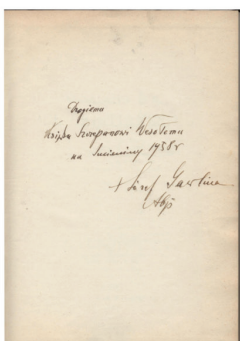 Drogiemu
Księdzu Szczepanowi Wesołemu
na Imieniny 1958 r
† Józef Gawlina
Abp